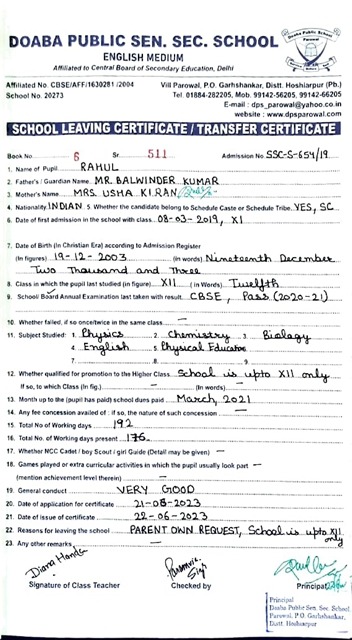 DOABA PUBLIC SEN. SEC. SCHOOL
ENGLISH MEDIUM
Affiliated to Central Board of Secondary Education, Delhi
Affiliated No. CBSE/AFF/1630281 /2004
School No. 20273
Vill Parowal, P.O. Garhshankar, Distt. Hoshiarpur (Pb.)
Tel. 01884-282205, Mob. 99142-56205, 99142-66205
E-mail : dps_parowal@yahoo.co.in
website : www.dpsparowal.com
SCHOOL LEAVING CERTIFICATE / TRANSFER CERTIFICATE
Book No 6 Sr. 511 Admission No SSC-S-654/19
1. Name of Pupil RAHUL
2. Father's / Guardian Name MR. BALWINDER KUMAR
3. Mother's Name MRS. USHA KIRAN
4. Nationality INDIAN 5. Whether the candidate belong to Schedule Caste or Schedule Tribe YES, SC
6. Date of first admission in the school with class 08-03-2019, XI
7. Date of Birth (In Christian Era) according to Admission Register
(In figures) 19-12-2003 (in words) Nineteenth December
Two Thousand and Three
8. Class in which the pupil last studied (in figure) XII ( in Words) Twelfth
9. School/ Board Annual Examination last taken with result CBSE, Pass (2020-21)
10. Whether failed, if so once/twice in the same class —
11. Subject Studied : 1. Physics 2. Chemistry 3. Biology
4. English 5. Physical Education 6.
7. 8. 9.
12. Whether qualified for promotion to the Higher Class School is upto XII only
If so, to which Class (In fig.) — (In words) —
13. Month up to the (pupil has paid) school dues paid March, 2021
14. Any fee concession availed of : if so, the nature of such concession —
15. Total No. of Working days 192
16. Total No. of Working days present 176
17. Whether NCC Cadet / boy Scout / girl Guide (Detail may be given) —
18. Games played or extra curricular activities in which the pupil usually look part —
(mention achievement level therein) —
19. General conduct VERY GOOD
20. Date of application for certificate 21-06-2023
21. Date of issue of certificate 22-06-2023
22. Reasons for leaving the school PARENT OWN REQUEST, School is upto XII only
23. Any other remarks —
Diana Handa
Signature of Class Teacher
Checked by
Principal
Principal
Doaba Public Sen. Sec. School
Parowal, P.O. Garhshankar,
Distt. Hoshiarpur